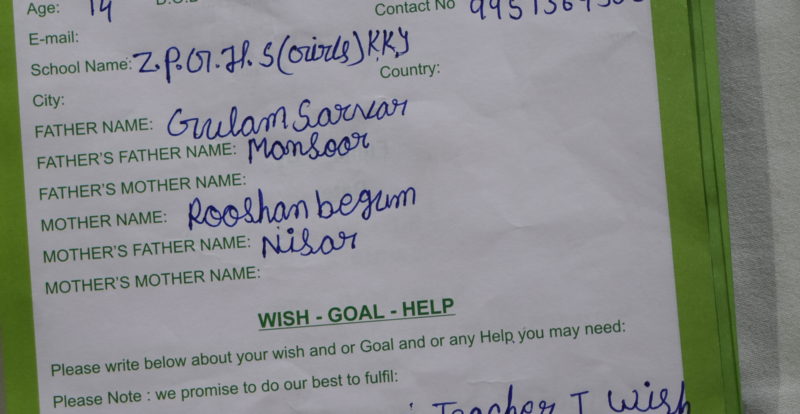 Age: 14
Contact No
E-mail:
School Name: Z.P.G.H.S (Girls) KKY
City: Country:
FATHER NAME: Gulam Sarvar
FATHER'S FATHER NAME: Mansoor
FATHER'S MOTHER NAME:
MOTHER NAME: Rooshan begum
MOTHER'S FATHER NAME: Nisar
MOTHER'S MOTHER NAME:
WISH - GOAL - HELP
Please write below about your wish and or Goal and or any Help you may need:
Please Note : we promise to do our best to fulfil:
Teacher I wish